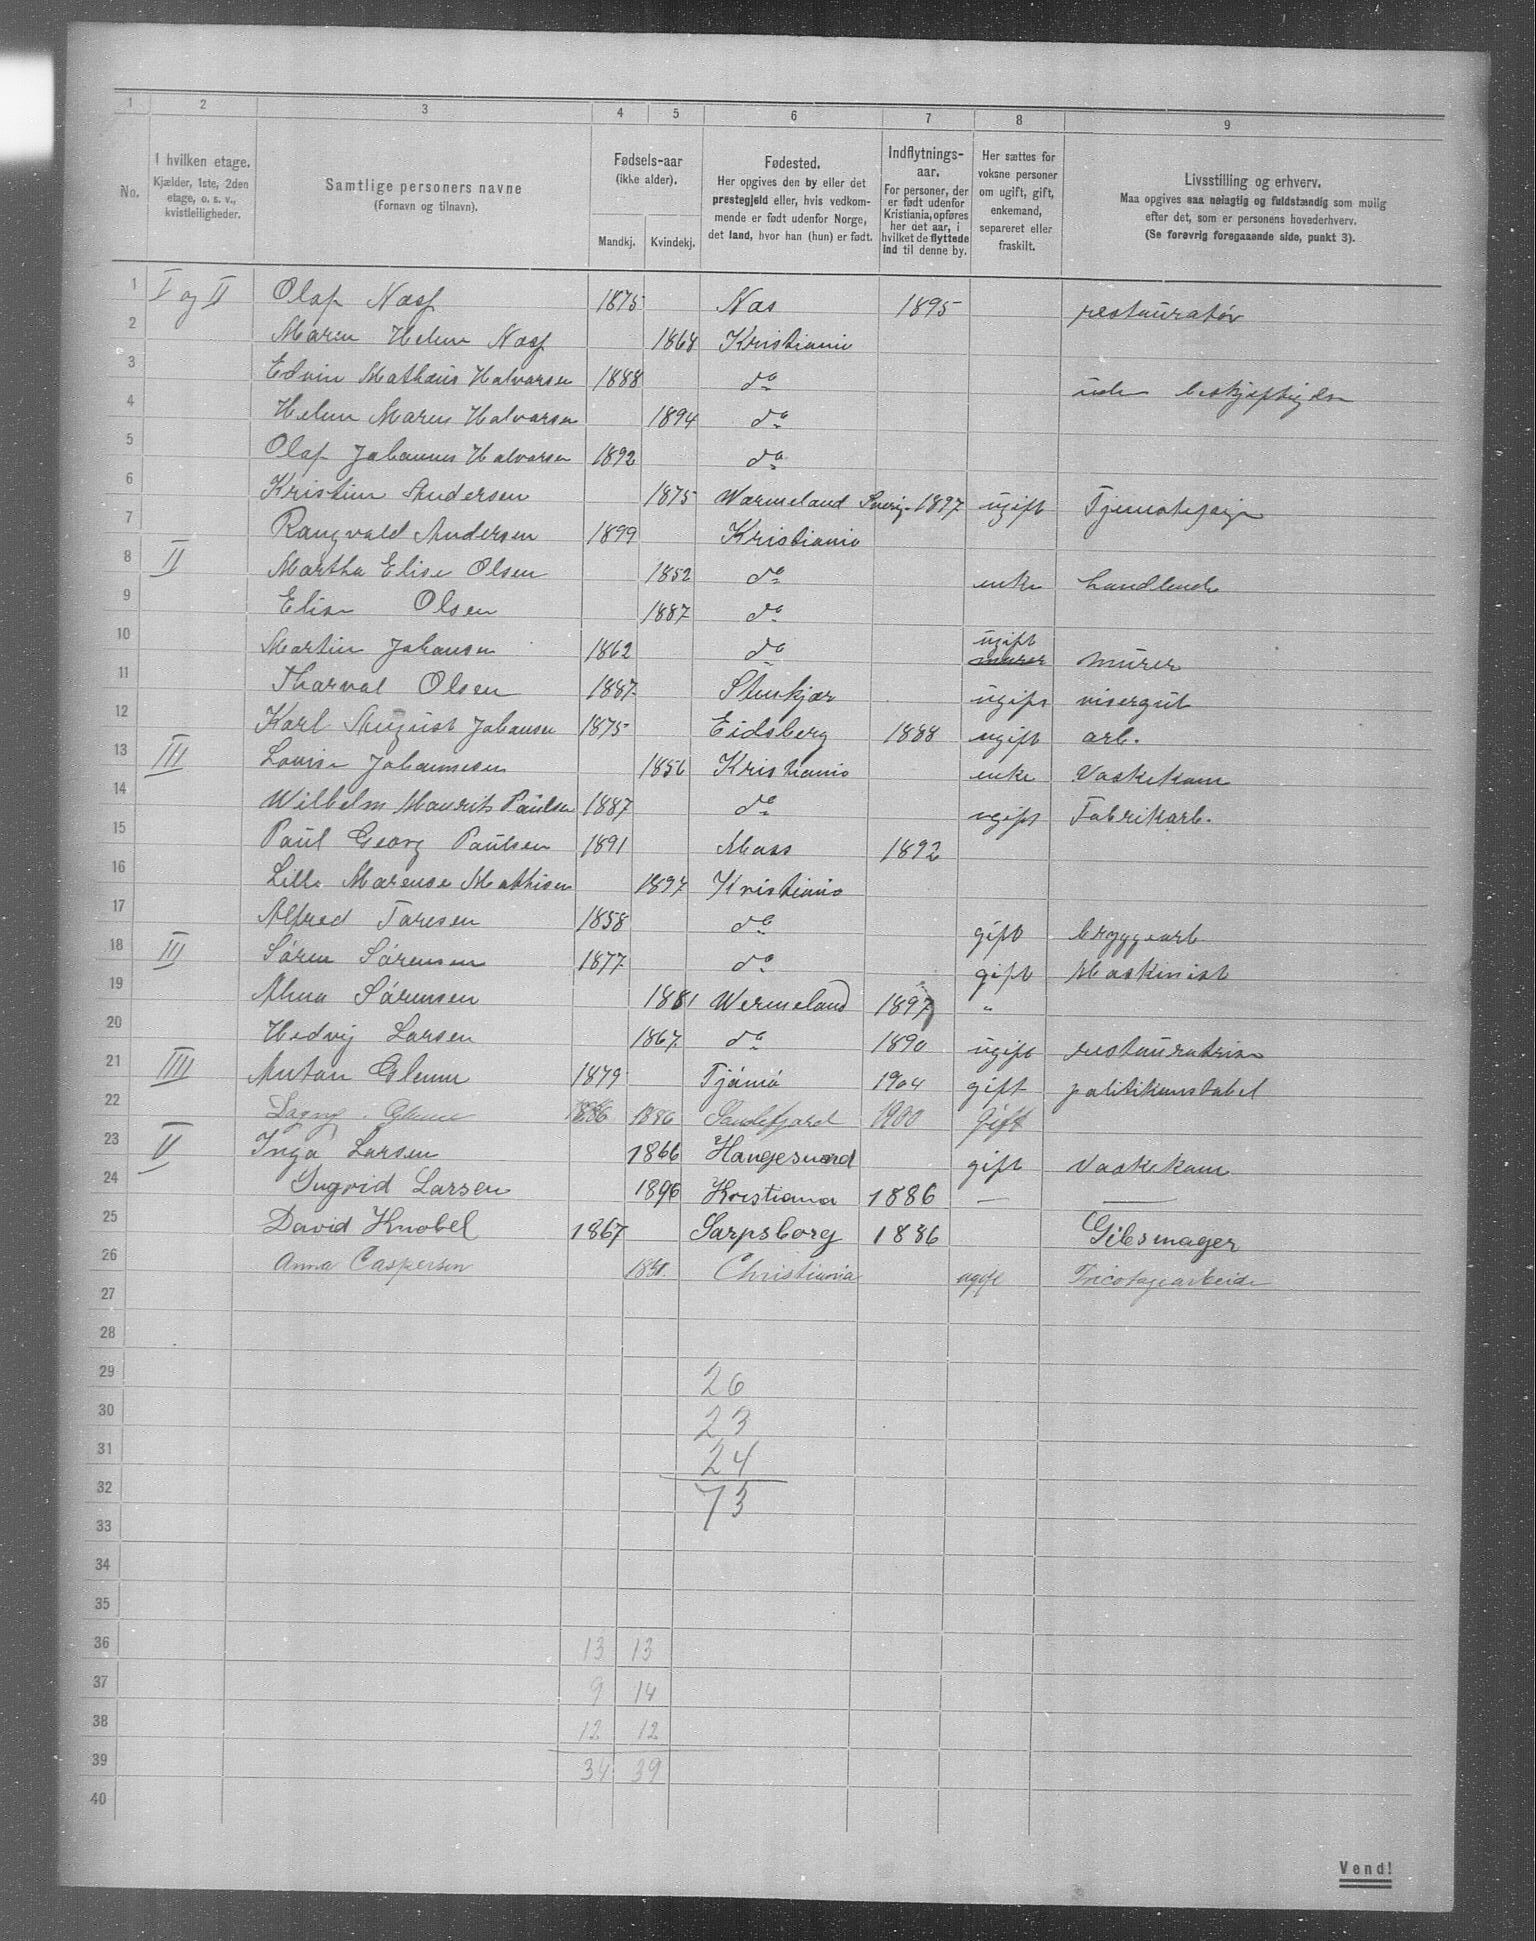 1 2 3 4 5 6 7 8 9
No.
I hvilken etage.
Kjælder, 1ste, 2den
etage, o. s. v.,
kvistleiligheder.
Samtlige personers navne
(Fornavn og tilnavn).
Fødsels-aar
(ikke alder).
Mandkj. Kvindekj.
Fødested.
Her opgives den by eller det
prestegjeld eller, hvis vedkom-
mende er født udenfor Norge,
det land, hvor han (hun) er født.
Indflytnings-
aar.
For personer, der
er født udenfor
Kristiania, opføres
her det aar, i
hvilket de flyttede
ind til denne by.
Her sættes for
voksne personer
om ugift, gift,
enkemand,
separeret eller
fraskilt.
Livsstilling og erhverv.
Maa opgives saa nøiagtig og fuldstændig som mulig
efter det, som er personens hovederhverv.
(Se forøvrig foregaaende side, punkt 3).
1 I og II Olaf Næss 1875 Næs 1895 restauratør
2 Maren Helene Næss 1868 Kristiania
3 Edvin Mathæus Halvorsen 1888 do uden beskjæftigelse
4 Helene Maren Halvorsen 1894 do
5 Olaf Johannes Halvorsen 1892 do
6 Kristine Andersen 1875 Wærmeland Sverig 1897 ugift Tjenestepige
7 Rangvald Andersen 1899 Kristiania
8 II Martha Elise Olsen 1852 do enke handlende
9 Elise Olsen 1887 do
10 Martin Johansen 1862 do ugift murer murer
11 Tharval Olsen 1887 Stenkjær ugift visergut
12 Karl August Johansen 1875 Eidsberg 1888 ugift arb.
13 III Lovise Johannesen 1856 Kristiania enke Vaskekone
14 Wilhelm Maurits Paulsen 1887 do ugift Fabrikarb.
15 Paul Georg Paulsen 1891 Moss 1892
16 Lilly Marense Mathisen 1897 Kristiania
17 Alfred Toresen 1858 do gift bryggearb.
18 III Søren Sørensen 1877 do gift Maskinist
19 Alma Sørensen 1881 Wermeland 1897 "
20 Hedvig Larsen 1867 do 1890 ugift restauratrise
21 IIII Anton Glenne 1879 Tjømø 1904 gift politikonstabel
22 Glenne 1886 1886 Sandefjord 1900 Gift
23 V Inga Larsen 1866 Haugesund gift Vaskekone
24 Ingrid Larsen 1896 Kristiana 1886 — —
25 David Knobel 1867 Sarpsborg 1886 Gibsmager
26 Anna Caspersen Christiania ugift Tricotagearbeide
27
28
29 26
30 23
31 24
32 73
33
34
35
36 13 13
37 9 14
38 12 12
39 34 39
40
Vend!